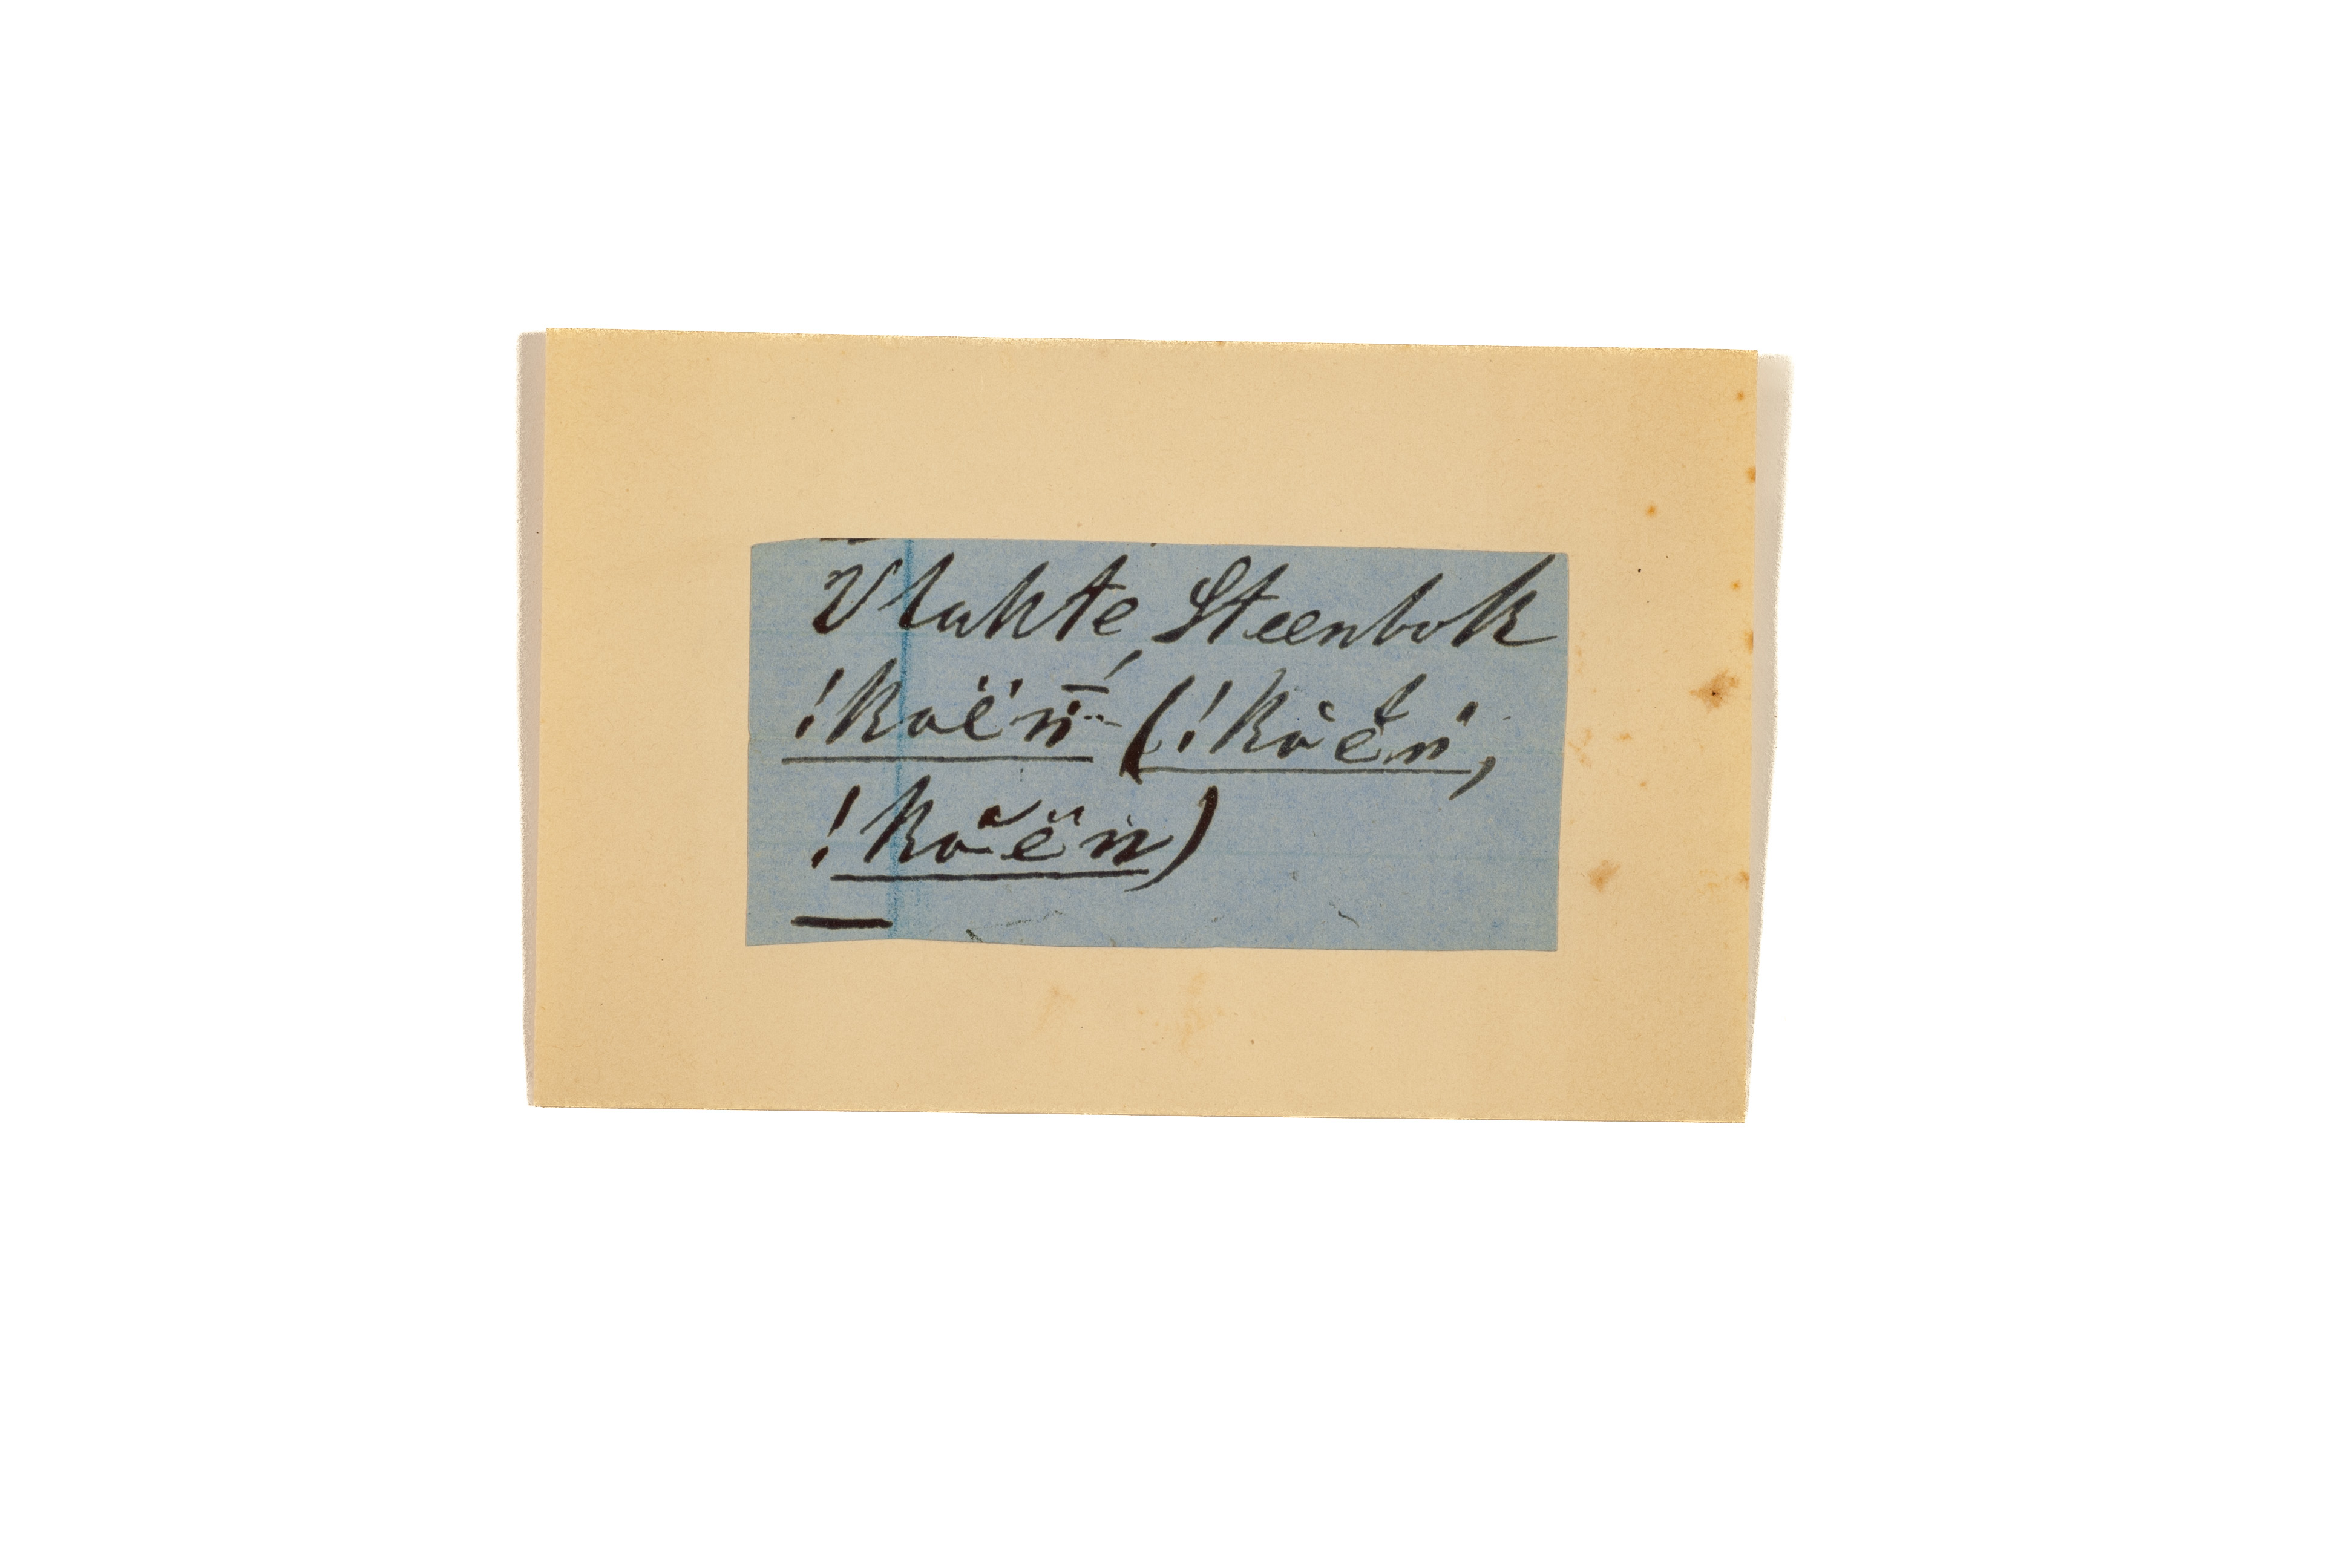 Vlakte Steenbok
!koën̄ (!kòĕn,
!kŏën)